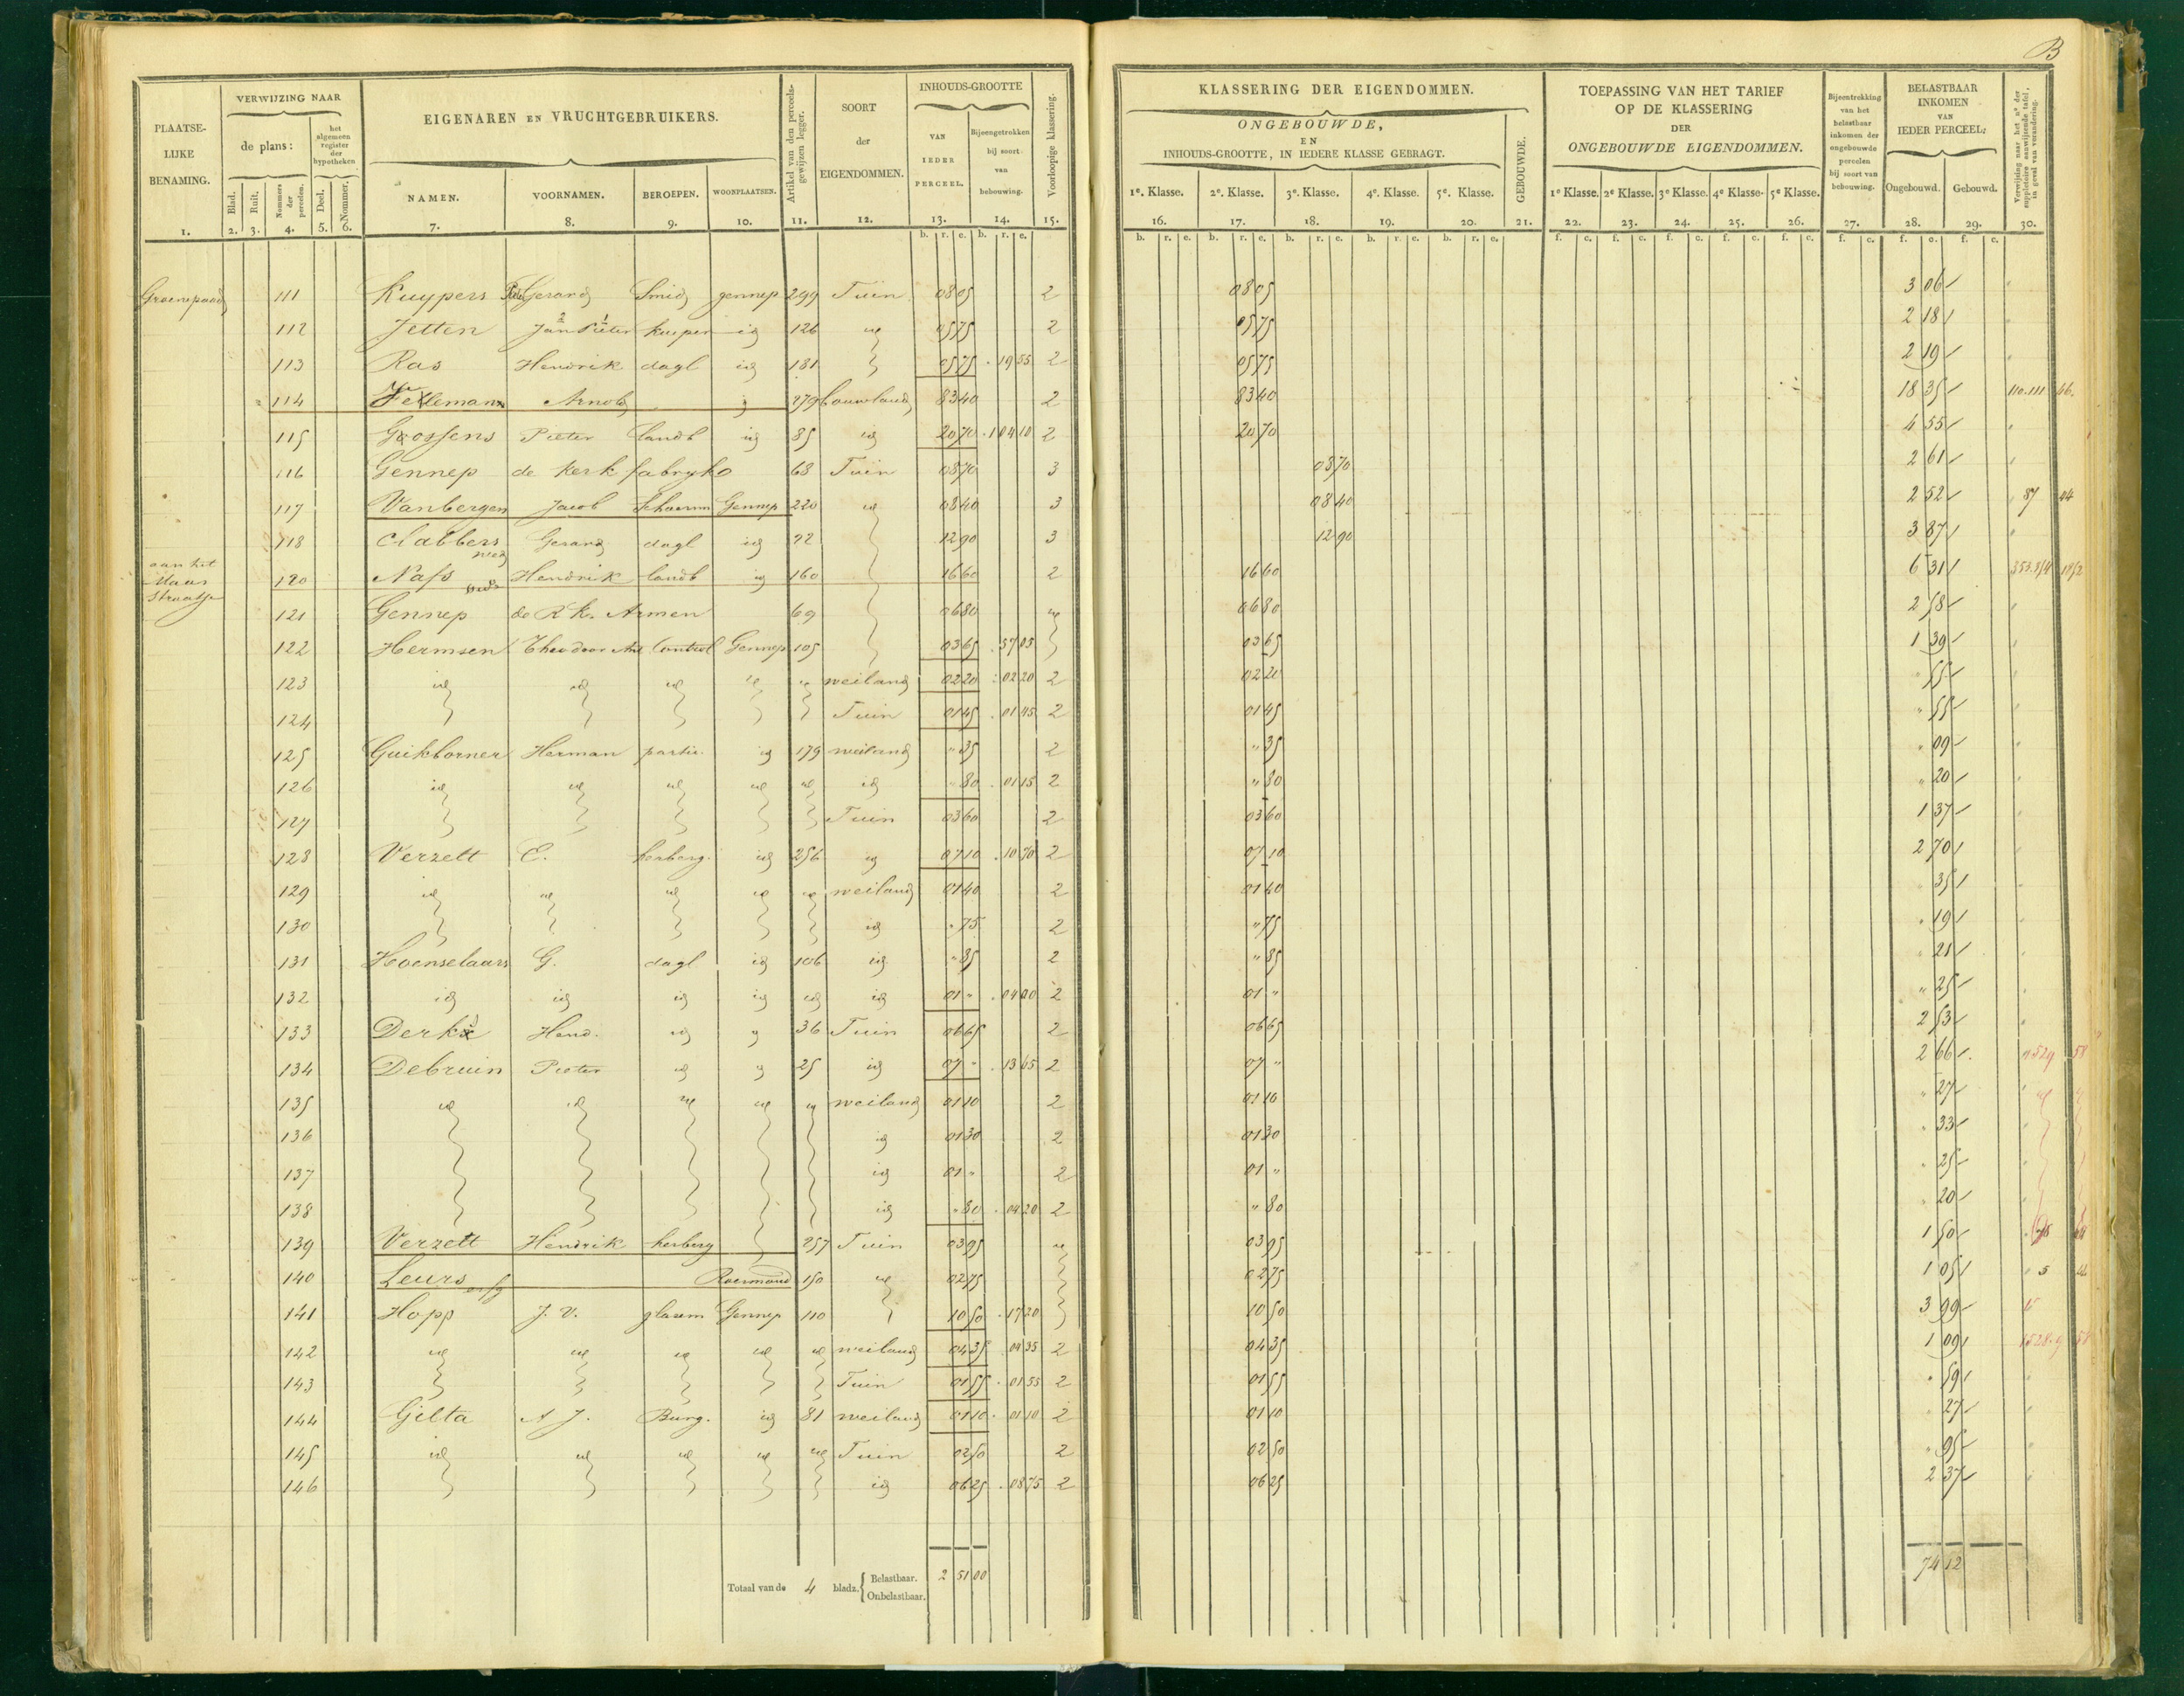 B
PLAATSELIJKE BENAMING.
VERWIJZING NAAR
de plans:
het algemeen register der hypotheken
Blad.
Ruit.
Nommers der perceelen.
Deel.
Nommer.
EIGENAREN EN VRUCHTGEBRUIKERS.
NAMEN.
VOORNAMEN.
BEROEPEN.
WOONPLAATSEN.
Artikel van den perceelsgewijzen legger.
SOORT der EIGENDOMMEN.
INHOUDS-GROOTTE
VAN IEDER PERCEEL.
Bijeengetrokken bij soort van bebouwing.
Voorloopige klassering.
1. 2. 3. 4. 5. 6. 7. 8. 9. 10. 11. 12. 13. 14. 15.
b. r. e. b. r. e.
KLASSERING DER EIGENDOMMEN.
ONGEBOUWDE,
EN
INHOUDS-GROOTTE, IN IEDERE KLASSE GEBRAGT.
GEBOUWDE.
1e. Klasse. 2e. Klasse. 3e. Klasse. 4e. Klasse. 5e. Klasse.
16. 17. 18. 19. 20. 21.
TOEPASSING VAN HET TARIEF
OP DE KLASSERING
DER
ONGEBOUWDE EIGENDOMMEN.
1e Klasse. 2e Klasse. 3e Klasse. 4e Klasse. 5e Klasse.
22. 23. 24. 25. 26.
Bijeentrekking van het belastbaar inkomen der ongebouwde perceelen bij soort van bebouwing.
27.
BELASTBAAR INKOMEN VAN IEDER PERCEEL:
Ongebouwd. Gebouwd.
28. 29.
Verwijzing naar het no der suppletoire aanwijzende tafel, in geval van verandering.
30.
Groenepaad 111 Kuypers Gerard Smid gennep 299 Tuin 08 05 2 08 05 3 06
112 Jetten Jan Pieter kuiper id 126 id 05 75 2 05 75 2 18
113 Ras Hendrik dagl id 181 05 75 19 55 2 05 75 2 19
114 Arnold 279 bouwland 83 40 2 83 40 18 35 110.111 46
115 Goossens Pieter landb id 85 id 20 70 1 04 10 2 20 70 4 55
116 Gennep de kerk fabryk 68 Tuin 08 70 3 08 70 2 61
117 Vanbergen Jacob Gennep 220 id 08 40 3 08 40 2 52 87 44
118 Clabbers Gerard dagl id 22 12 90 3 12 90 3 87
aan het Maas straatje
120 Nass Hendrik landb id 160 16 60 2 16 60 6 31
121 Gennep de R k. Armen 69 06 80 id 06 80 2 58
122 Hermsen Theodoor Ant Control Gennep 105 03 65 57 05 03 65 1 39
123 id id id id id weiland 02 20 02 20 2 02 20 55
124 Tuin 01 45 01 45 2 01 45 " 55
125 Guikborner Herman partic. id 179 weiland " 35 2 " 35 " 09
126 id id id id id id " 80 01 15 2 " 80 " 20
127 Tuin 03 60 2 03 60 1 37
128 Verzett E. herberg. id 256 id 07 10 10 70 2 07 10 2 70
129 id id id id id weiland 01 40 2 01 40 35
130 id " 75 2 " 75 " 19
131 Hoenselaars G. dagl id 106 id " 85 2 " 85 " 21
132 id id id id id id 01 " 04 00 2 01 " " 25
133 Derks Hend. id id 36 Tuin 06 65 2 06 65 2 53
134 Debruin Pieter id id 25 id 07 " 13 65 2 07 " 2 66 529 58
135 id id id id id weiland 01 10 2 01 10 " 27
136 id 01 30 2 01 30 " 33
137 id 01 " 2 01 " " 25
138 id " 80 04 20 2 " 80 " 20
139 Verzett Hendrik herberg 257 Tuin 03 95 id 03 95 1 50
140 Leurs Roermond 150 id 02 75 02 75 1 05 5
141 Hopp J. V. glasem Gennep 110 10 50 17 20 10 50 3 99
142 id id id id id weiland 04 35 04 35 2 04 35 1 09 58
143 Tuin 01 55 01 55 2 01 55 " 59
144 Gilta A J. Burg. id 81 weiland 01 10 01 10 2 01 10 " 27
145 id id id id id Tuin 02 50 2 02 50 " 95
146 id 06 25 08 75 2 06 25 2 37
Totaal van de 4 bladz. Belastbaar. 2 51 00
Onbelastbaar.
74 12